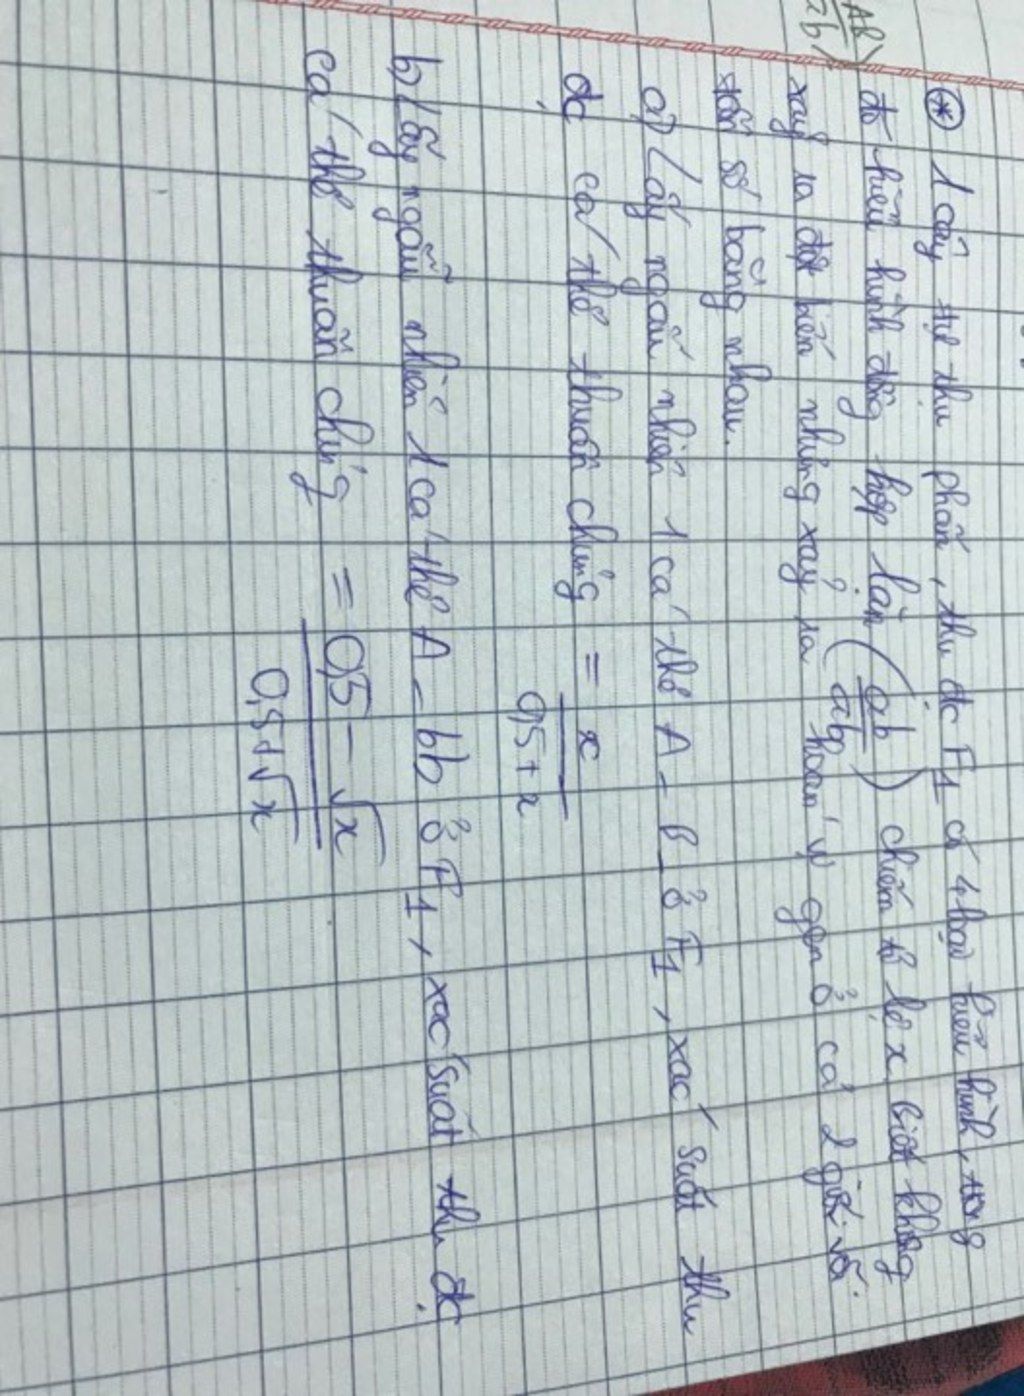 AB
ab
⊛ 1 cây tự thụ phấn, thu đc F1 có 4 loại kiểu hình, trong
đó kiểu hình đồng hợp lặn (ab/ab) chiếm tỉ lệ x. Biết không
xảy ra đột biến nhưng xảy ra hoán vị gen ở cả 2 giới với
tần số bằng nhau.
a) Lấy ngẫu nhiên 1 cá thể A-B- ở F1, xác suất thu
đc cá thể thuần chủng = x / 0,5 + x
b) Lấy ngẫu nhiên 1 cá thể A-bb ở F1, xác suất thu đc
cá thể thuần chủng = 0,5 - √x / 0,5 + √x